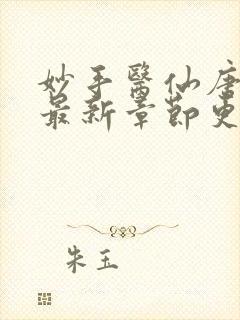 妙手醫仙唐
最新章節更
朱玉